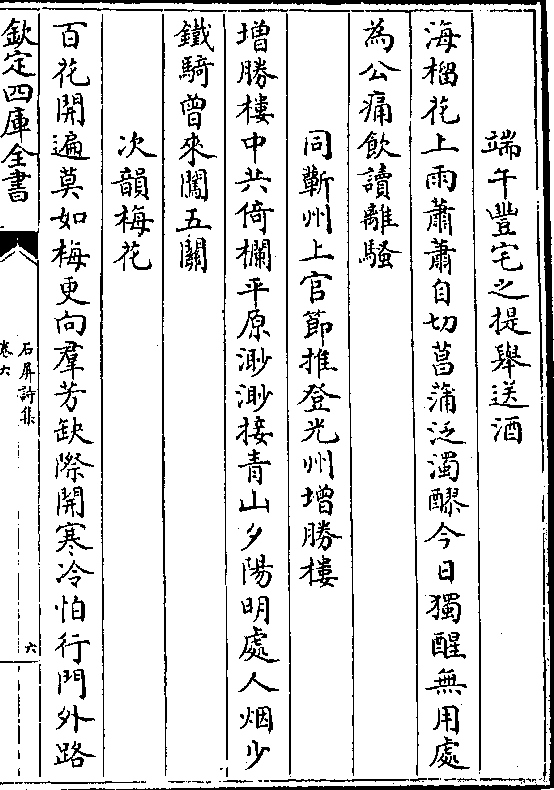 端午豐宅之提舉送酒
海榴花上雨蕭蕭自切菖蒲泛濁醪今日獨醒無用處
為公痛飲讀離騷
同蘄州上官節推登光州增勝樓
增勝樓中共倚欄平原渺渺接青山夕陽明處人烟少
鐵騎曾來闖五關
次韻梅花
百花開遍莫如梅更向羣芳缺際開寒冷怕行門外路
欽定四庫全書
石屏詩集
卷六
六